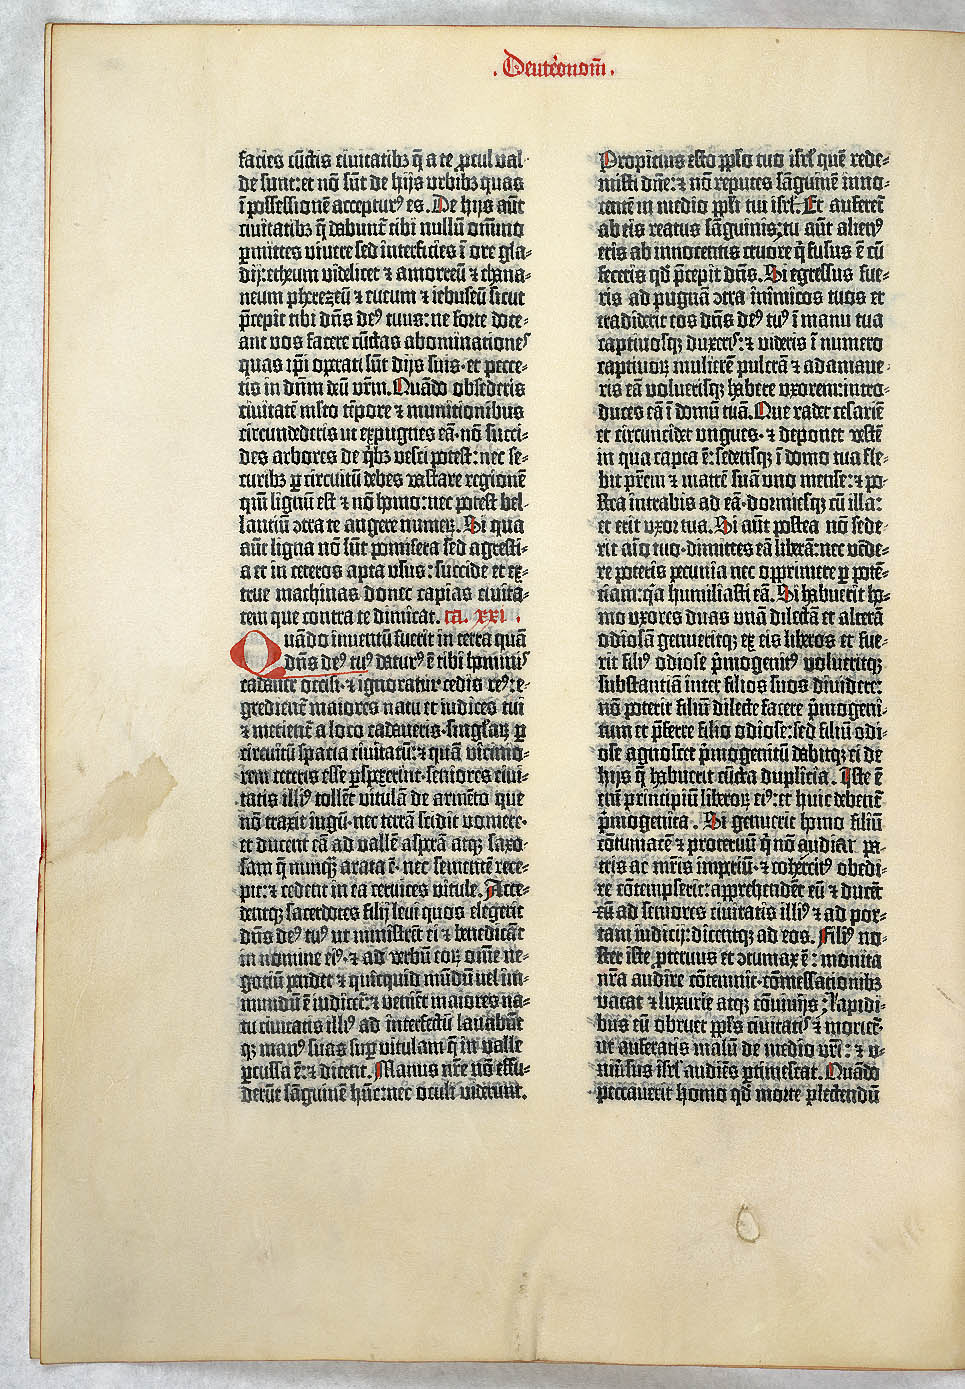 .Deuteronom̄.
facies cūctis ciuitatibꝫ q̄ a te ꝓcul val-
de sunt: et nō sūt de hijs vrbibꝫ quas
ī possessionē acceptur⁹ es. De hijs aūt
ciuitatibꝫ q̄ dabunt̄ tibi nullū om̄ino
ꝑmittes viuere sed interficies ī ore gla-
dij: etheum videlicet ⁊ amorreū ⁊ chana-
neum pherezeū ⁊ eueum ⁊ iebuseū sicut
p̄cepit tibi dn̄s de⁹ tuus: ne forte doce-
ant vos facere cūctas abominationes
quas ip̄i oꝑati sūt dijs suis· et pecce-
tis in dn̄m deū vr̄m. Quādo obsederis
ciuitatē m̄lto tp̄ore ⁊ munitionibus
circundederis ut expugnes eā· nō succi-
des arbores de q̄bꝫ vesci potest: nec se-
curibꝫ ꝑ circuitū debes vastare regionē
qm̄ lignū est ⁊ nō homo: nec potest bel-
lantiū ɔtra te augere numeꝝ. Si qua
aūt ligna nō sūt pomifera sed agresti-
a et in ceteros apta vsus: succide et ex-
true machinas donec capias ciuita-
tem que contra te dimicat. ca. xxi.
Quādo inuentū fuerit in terra quā
dn̄s de⁹ tu⁹ datur⁹ ē tibi hominis
cadauer occisi· ⁊ ignoratur cedis re⁹: e-
gredient̄ maiores natu et iudices tui
⁊ metient̄ a loco cadaueris· singl̄aꝝ ꝑ
circuitū spatia ciuitatū: ⁊ quā vicino-
rem ceteris esse ꝑspexerint· seniores ciui-
tatis illi⁹ tollēt vitulā de armēto que
nō traxit iugū· nec terrā scidit vomere·
et ducent eā ad vallē asperā atqꝫ saxo-
sam q̄ nunqꝫ arata ē· nec sementē rece-
pit: ⁊ cedent in ea ceruices vitule. Acce-
dentqꝫ sacerdotes filij leui quos elegerit
dn̄s de⁹ tu⁹ ut ministrēt ei ⁊ benedicāt
in nomine ei⁹· ⁊ ad verbū eoꝝ om̄e ne-
gotiū pendet ⁊ quicquid mūdū uel im-
mundū ē iudicet̄: ⁊ veniēt maiores na-
tu ciuitatis illi⁹ ad interfectū lauabūt
qꝫ man⁹ suas suꝑ vitulam q̄ in valle
ꝑcussa ē: ⁊ dicent. Manus nr̄e nō effu-
derūt sāguinē hūc: nec oculi viderunt.
Propitius esto pp̄lo tuo isrl̄ quē rede-
misti dn̄e: ⁊ nō reputes sāguinē inno-
centē in medio pp̄li tui isrl̄. Et auferet̄
ab eis reatus sāguinis: tu aūt alien⁹
eris ab innocentis cruore q̄ fusus ē cū
feceris qd̄ p̄cepit dn̄s. Si egressus fue-
ris ad pugnā ɔtra inimicos tuos et
tradiderit eos dn̄s de⁹ tu⁹ ī manu tua
captiuosqꝫ duxeris: ⁊ videris ī numero
captiuoꝝ mulierē pulcrā ⁊ adamaue-
ris eā voluerisqꝫ habere vxorem: intro-
duces eā ī domū tuā. Que radet cesariē
et circuncidet ungues· ⁊ deponet vestē
in qua capta ē: sedensqꝫ ī domo tua fle-
bit pr̄em ⁊ matrē suā vno mense: ⁊ po-
stea intrabis ad eā· dormiesqꝫ cū illa:
et erit vxor tua. Si aūt postea nō sede-
rit aīo tuo· dimittes eā liberā: nec vēde-
re poteris pecunia nec opprimere ꝑ potē-
tiam: qa humiliasti eā. Si habuerit ho-
mo vxores duas vnā dilectā et alterā
odiosā: genueritqꝫ ex eis liberos et fue-
rit fili⁹ odiose p̄mogenit⁹ volueritqꝫ
substantiā inter filios suos diuidere:
nō poterit filiū dilecte facere p̄mogeni-
tum et p̄ferre filio odiose: sed filiū odi-
ose agnoscet p̄mogenitū dabitqꝫ ei de
hijs q̄ habuerit cūcta duplicia. Iste ē
enī principiū liberoꝝ ei⁹: et huic debent̄
p̄mogenita. Si genuerit homo filiū
cōtumacē ⁊ proteruū q̄ nō audiat pa-
tris ac mr̄is imperiū· ⁊ cohercit⁹ obedi-
re cōtempserit: apprehendēt eū ⁊ ducēt
eū ad seniores ciuitatis illi⁹ ⁊ ad por-
tam iudicij: dicentqꝫ ad eos. Fili⁹ no-
ster iste ꝓteruus et ɔtumax ē: monita
nr̄a audire cōtemnit· cōmessationibꝫ
vacat ⁊ luxurie atqꝫ cōuiuijs: Lapidi-
bus eū obruet pp̄ls ciuitatis ⁊ moriet̄·
ut auferatis malū de medio vr̄i: ⁊ v-
niūsus isrl̄ audiēs ꝑtimescat. Quādo
peccauerit homo qd̄ morte plectendū